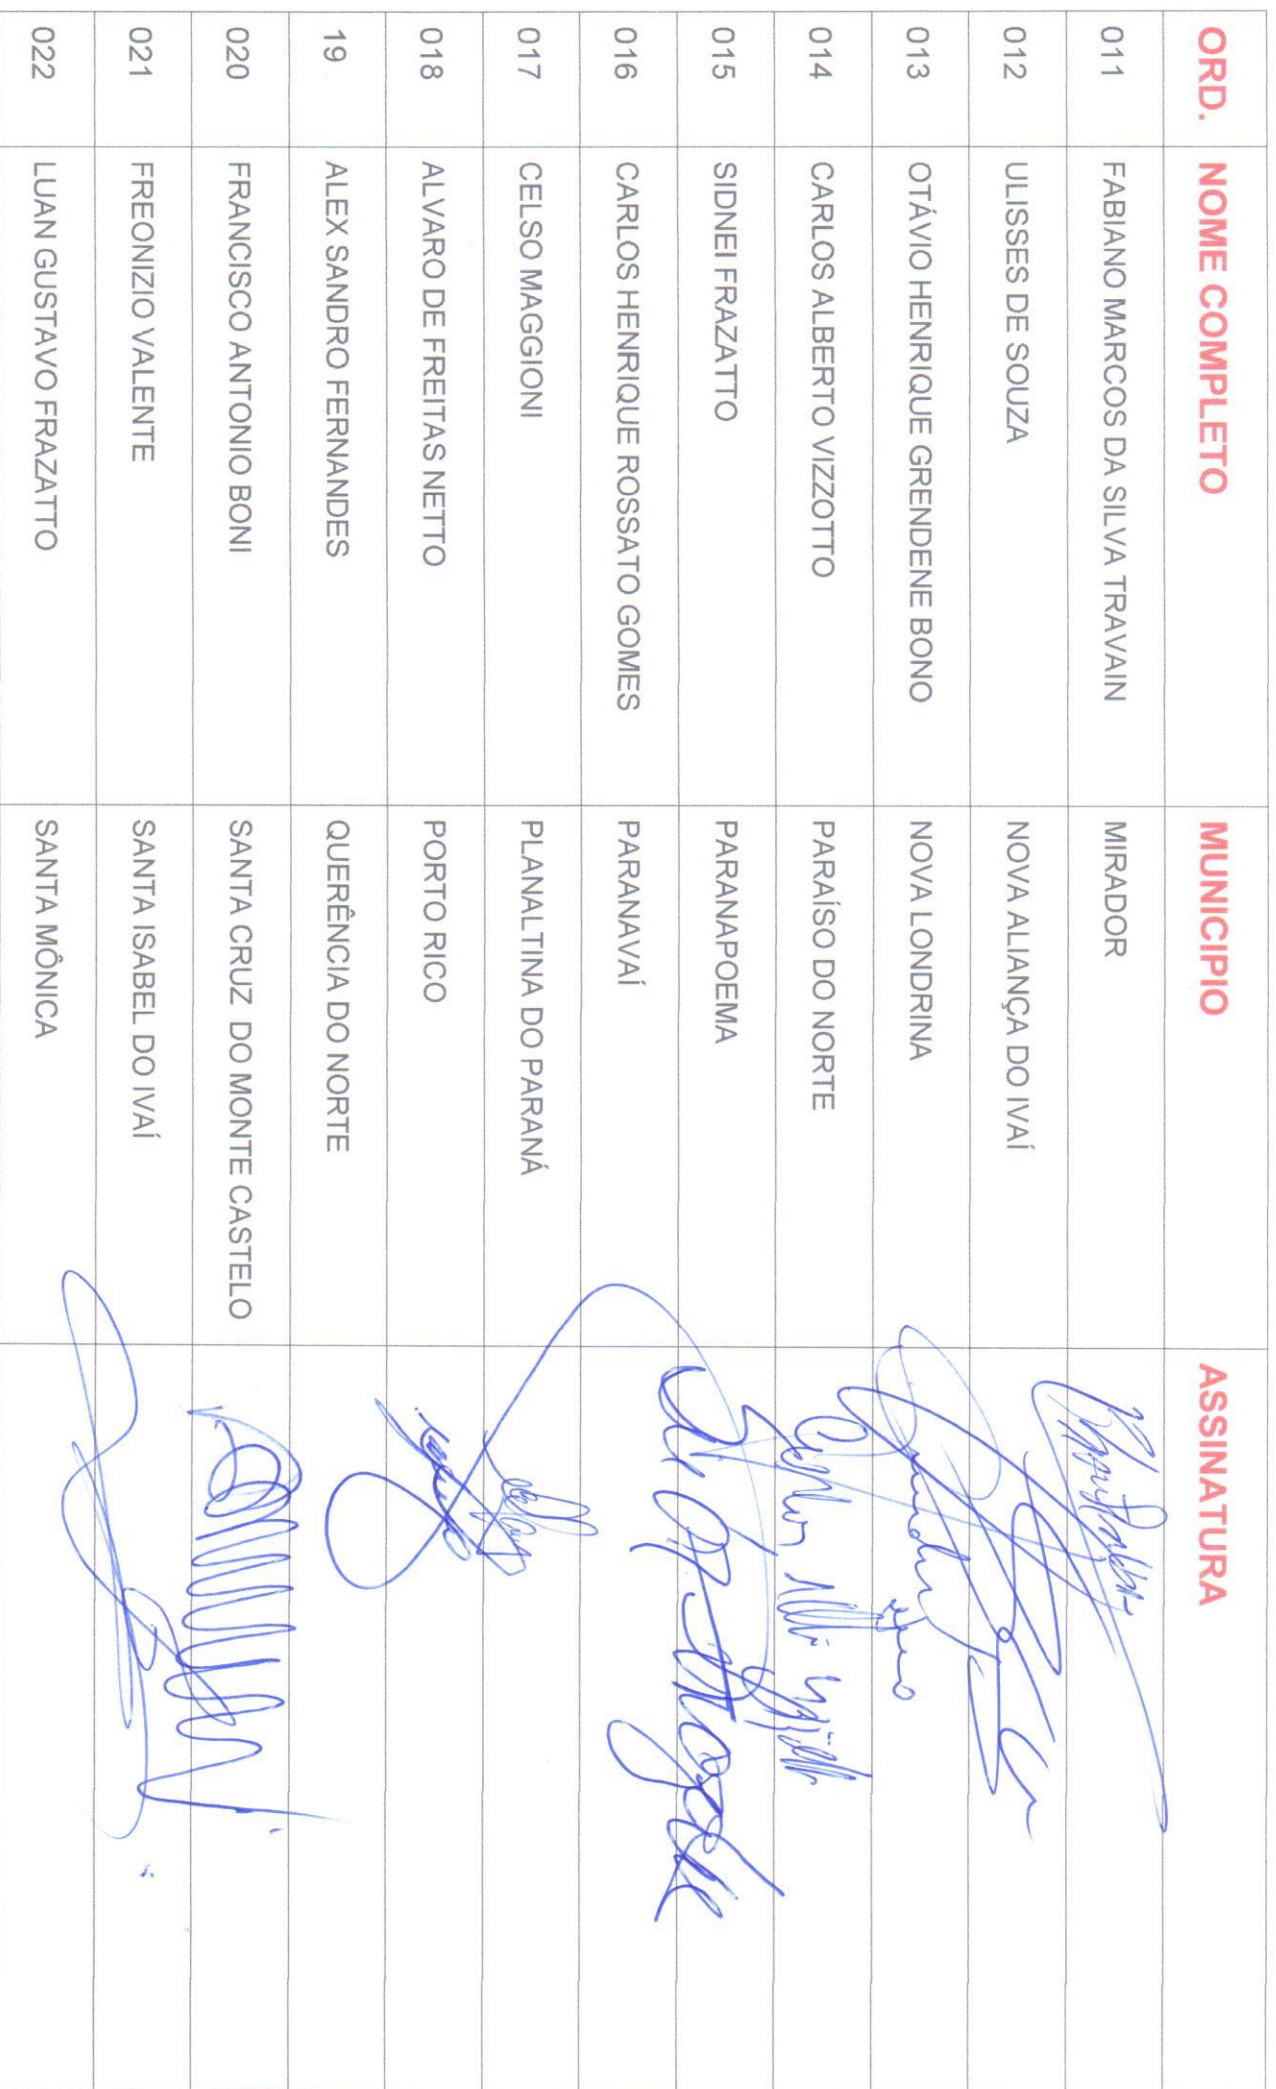 ORD. NOME COMPLETO MUNICIPIO ASSINATURA
011 FABIANO MARCOS DA SILVA TRAVAIN MIRADOR
012 ULISSES DE SOUZA NOVA ALIANÇA DO IVAÍ
013 OTÁVIO HENRIQUE GRENDENE BONO NOVA LONDRINA
014 CARLOS ALBERTO VIZZOTTO PARAÍSO DO NORTE
015 SIDNEI FRAZATTO PARANAPOEMA
016 CARLOS HENRIQUE ROSSATO GOMES PARANAVAÍ
017 CELSO MAGGIONI PLANALTINA DO PARANÁ
018 ALVARO DE FREITAS NETTO PORTO RICO
19 ALEX SANDRO FERNANDES QUERÊNCIA DO NORTE
020 FRANCISCO ANTONIO BONI SANTA CRUZ DO MONTE CASTELO
021 FREONIZIO VALENTE SANTA ISABEL DO IVAÍ
022 LUAN GUSTAVO FRAZATTO SANTA MÔNICA